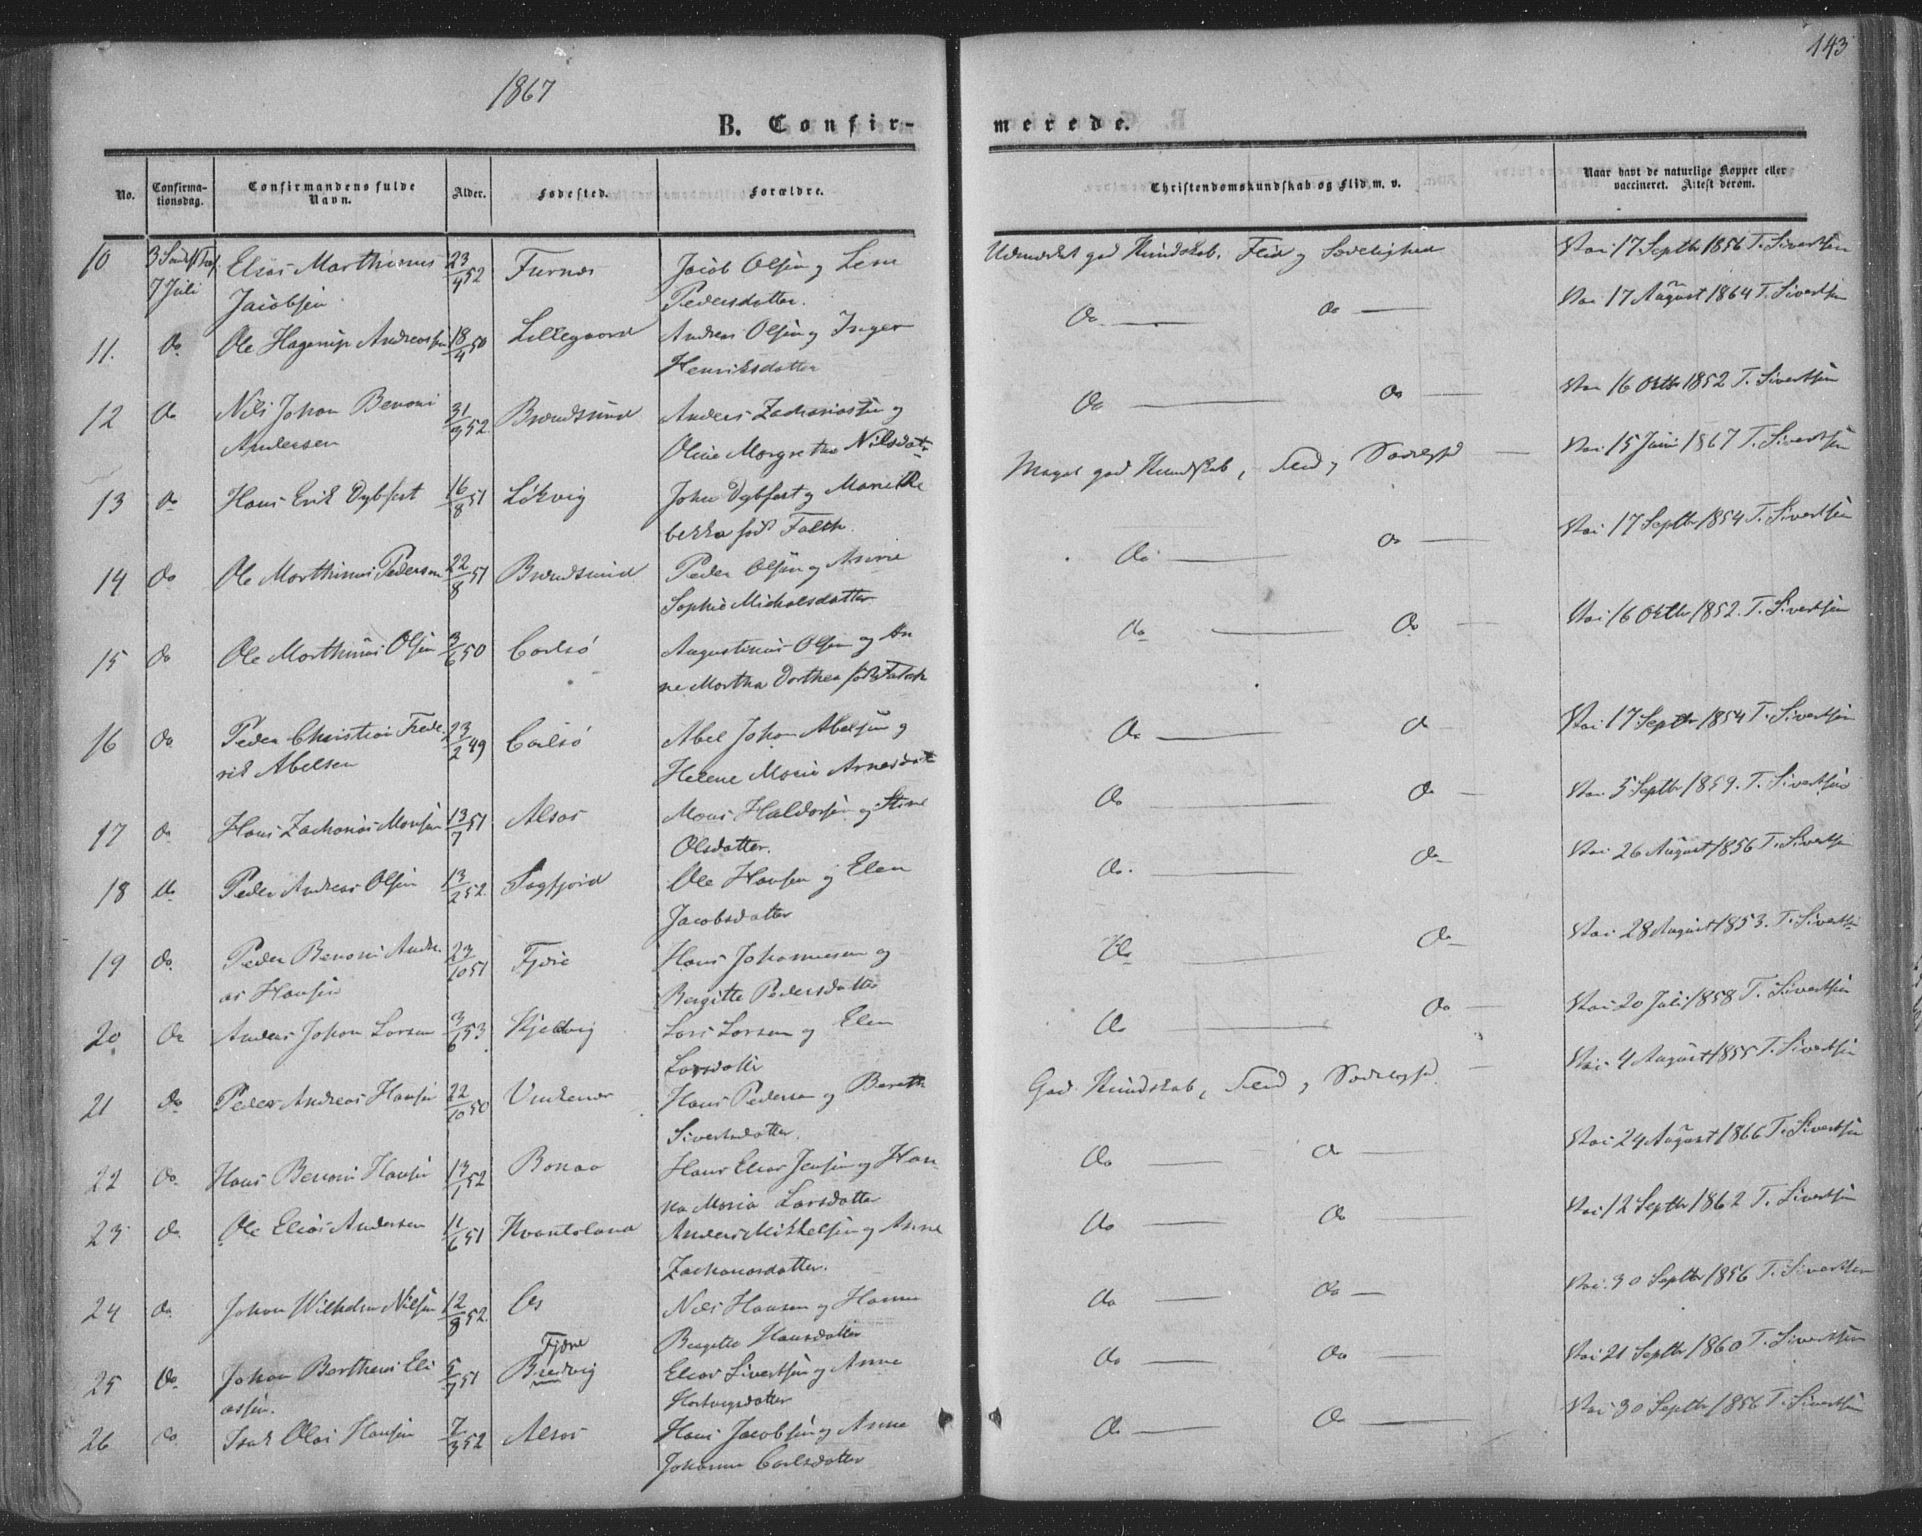 143
1867
B. Confir-
merede.
No. Confirma-tionsdag. Confirmandens fulde Navn. Alder. Fødested. Forældre. Christendomskundskab og Flid m. v. Naar havt de naturlige Kopper eller vaccineret. Attest derom.
10 3 Sønd. f. Tref. Elias Marthinus 23/4 52 Furnæs Jacob Olsen og Lene Udmærket god Kundskab, Flid og Sædelighed Vac 17 Septbr 1856 T. Sivertsen
7 Juli Jacobsen Pedersdatter.
11. do Ole Hagerup Andreassen 18/4 50 Lillegaard Andreas Olsen og Inger Do — do — Vac 17 August 1864 T. Sivertsen
Henriksdatter
12 do Nils Johan Benoni 31/3 52 Brændsund Anders Zachariassen og Do — do — Vac 16 Octbr 1852 T. Sivertsen
Andersen Oline Margrethe Nilsdat-
13 do Hans Erik Dybfest 16/8 51 Løkvig John Dybfest og Marie Re Meget god Kundskab, Flid og Sædelighd — Vac 15 Juni 1867 T. Sivertsen
bekka født Falch.
14 do Ole Marthinus Pedersen 22/8 51 Brændsund Peder Olsen og Anne Do — do — Vac 17 Septbr 1854 T. Sivertsen
Sophie Michalsdatter
15 do Ole Marthinus Olsen 3/6 50 Carlsø Augustinus Olsen og An do — do — Vac 16 Octbr 1852. T. Sivertsen
ne Martha Dorthea født Falch
16 do Peder Christian Frede 23/2 49 Carlsø Abel Johan Abelsen og Do — do Vac 17 Septbr 1854 T. Sivertsen
rik Abelsen Helene Marie Arnesdat
17 do Hans Zacharias Monsen 13/7 51 Alsos Mons Haldorsen og Stine Do — do — Vac 5 Septbr 1859. T. Sivertsen
Olsdatter.
18 do Peder Andreas Olsen 13/2 52 Sagfjord Ole Hansen og Elen Do. — do Vac 26 August 1856 T. Sivertsen
Jacobsdatter
19 do. Peder Benoni Andre 23/10 51 Fjære Hans Johannesen og do — do Vac 28 August 1853. T. Sivertsen
as Hansen Bergitte Pedersdatter
20 do Anders Johan Larsen 3/6 53 Kjeldvig Lars Larsen og Elen do — do — Vac 20 Juli 1858 T. Sivertsen
Larsdatter
21 do Peder Andreas Hansen 22/10 50 Vinkenæs Hans Pedersen og Bereth God Kundskab, Flid og Sædelighd — Vac 4 August 1855 T. Sivertsen
Sivertsdatter.
22 do. Hans Benoni Hansen 13/1 52 Bonaa Hans Elias Jensen og Han Do — do — Vac 24 August 1866 T. Sivertsen
na Maria Larsdatter
23 do. Ole Elias Andersen 11/6 51 Kvantoland Anders Mikkelsen og Anne do — do — Vac 12 Septbr 1862 T. Sivertsen
Zachariasdatter.
24 do. Johan Wilhelm Nilsen 12/8 52. Es Nils Hansen og Hanna do — do — Vac 30 Septbr 1856 T. Sivertsen
Bergitte Hansdatter
25 do Johan Barthens Eli 5/7 51 Fjære Bredvig Elias Sivertsen og Anne do — do — Vac 21 Septbr 1860 T. Sivertsen
assen. Hartvigsdatter
26 do Isak Olai Hansen 7/3 52 Alsos Hans Jacobsen og Anne do — do — Vac 30 Septbr 1856 T. Sivertsen
Johanna Carlsdatter